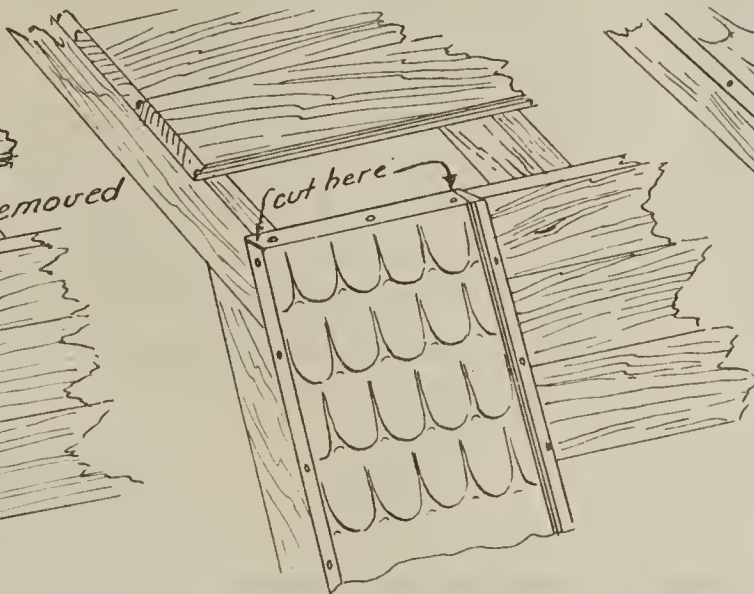 emoved
cut here